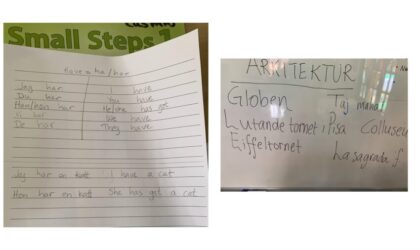 Small Steps 1
Have = ha/har
Jag har I have
Du har You have
Han/hon har He/she has got
Vi har We have
De har They have
Jag har en katt I have a cat
Hon har en katt She has got a cat
ARKITEKTUR
Globen Taj mahal
Lutande tornet i Pisa Colluseu
Eiffeltornet La sagrada f